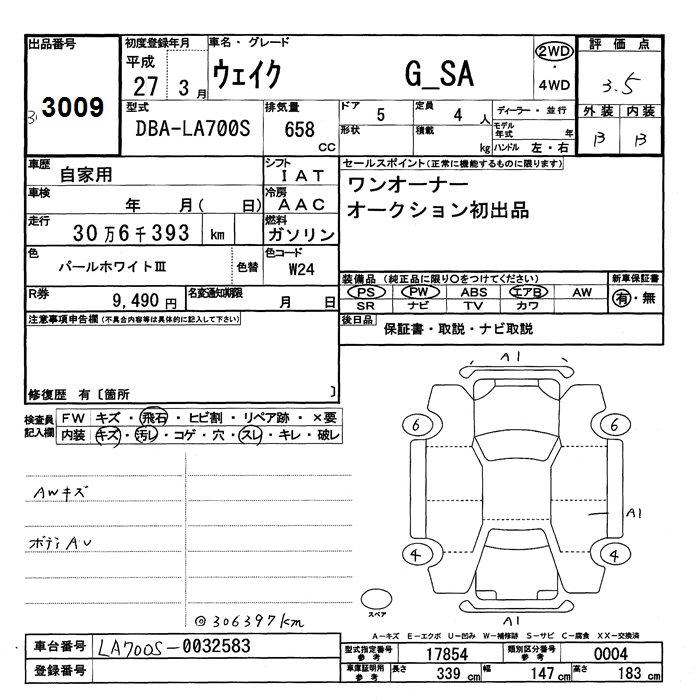 出品番号
3
3009
初度登録年月
平成
27 3月
車名・グレード
ウェイク G_SA
2WD
・
4WD
評価点
3.5
外装 内装
B B
型式
DBA-LA700S
排気量
658
cc
ドア 5
定員 4 人
形状
積載 kg
ディーラー・並行
モデル年式 年
ハンドル 左・右
車歴 自家用
シフト IAT
車検 年 月( 日)
冷房 AAC
走行 30万6千393 km
燃料 ガソリン
色 パールホワイトⅢ
色替
色コード W24
R券 9,490円
名変通知期限 月 日
セールスポイント(正常に機能するものに限ります)
ワンオーナー
オークション初出品
装備品(純正品に限り○をつけてください)
PS PW ABS エアB AW
SR ナビ TV カワ
新車保証書
有・無
後日品 保証書・取説・ナビ取説
注意事項申告欄(不具合内容等は具体的に記入して下さい)
修復歴 有〔箇所 〕
検査員
記入欄
FW キズ・飛石・ヒビ割・リペア跡・×要
内装 キズ・汚レ・コゲ・穴・スレ・キレ・破レ
AWキズ
ボディAU
◎306397km
A1
6 6
A1
4 4
スペア
A1
A-キズ E-エクボ U-凹み W-補修跡 S-サビ C-腐食 XX-交換済
車台番号 LA700S-0032583
登録番号
型式指定番号
参考
17854
類別区分番号
参考
0004
車庫証明用
参考
長さ 339 cm
幅 147 cm
高さ 183 cm